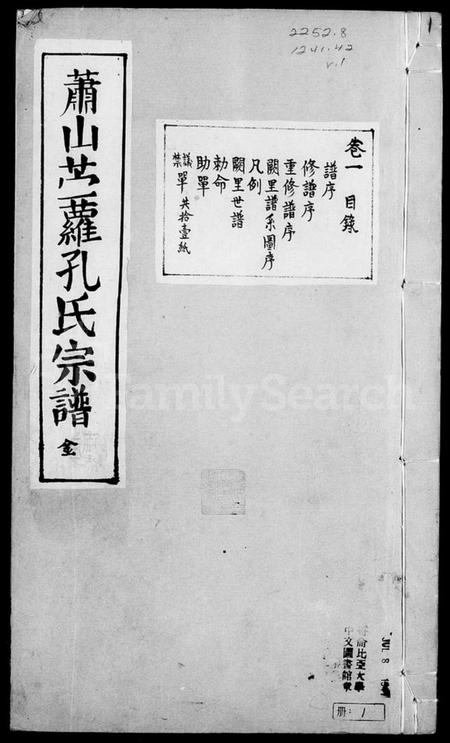 2252.8
1241.42
v.1
蕭山苧蘿孔氏宗譜 全
卷一 目錄
譜序
修譜序
重修譜序
闕里譜系圖序
凡例
闕里世譜
勅命
助單
議單
禁 共拾壹紙
FamilySearch
比亞大學
中文圖書館
JUL 8
冊: 1